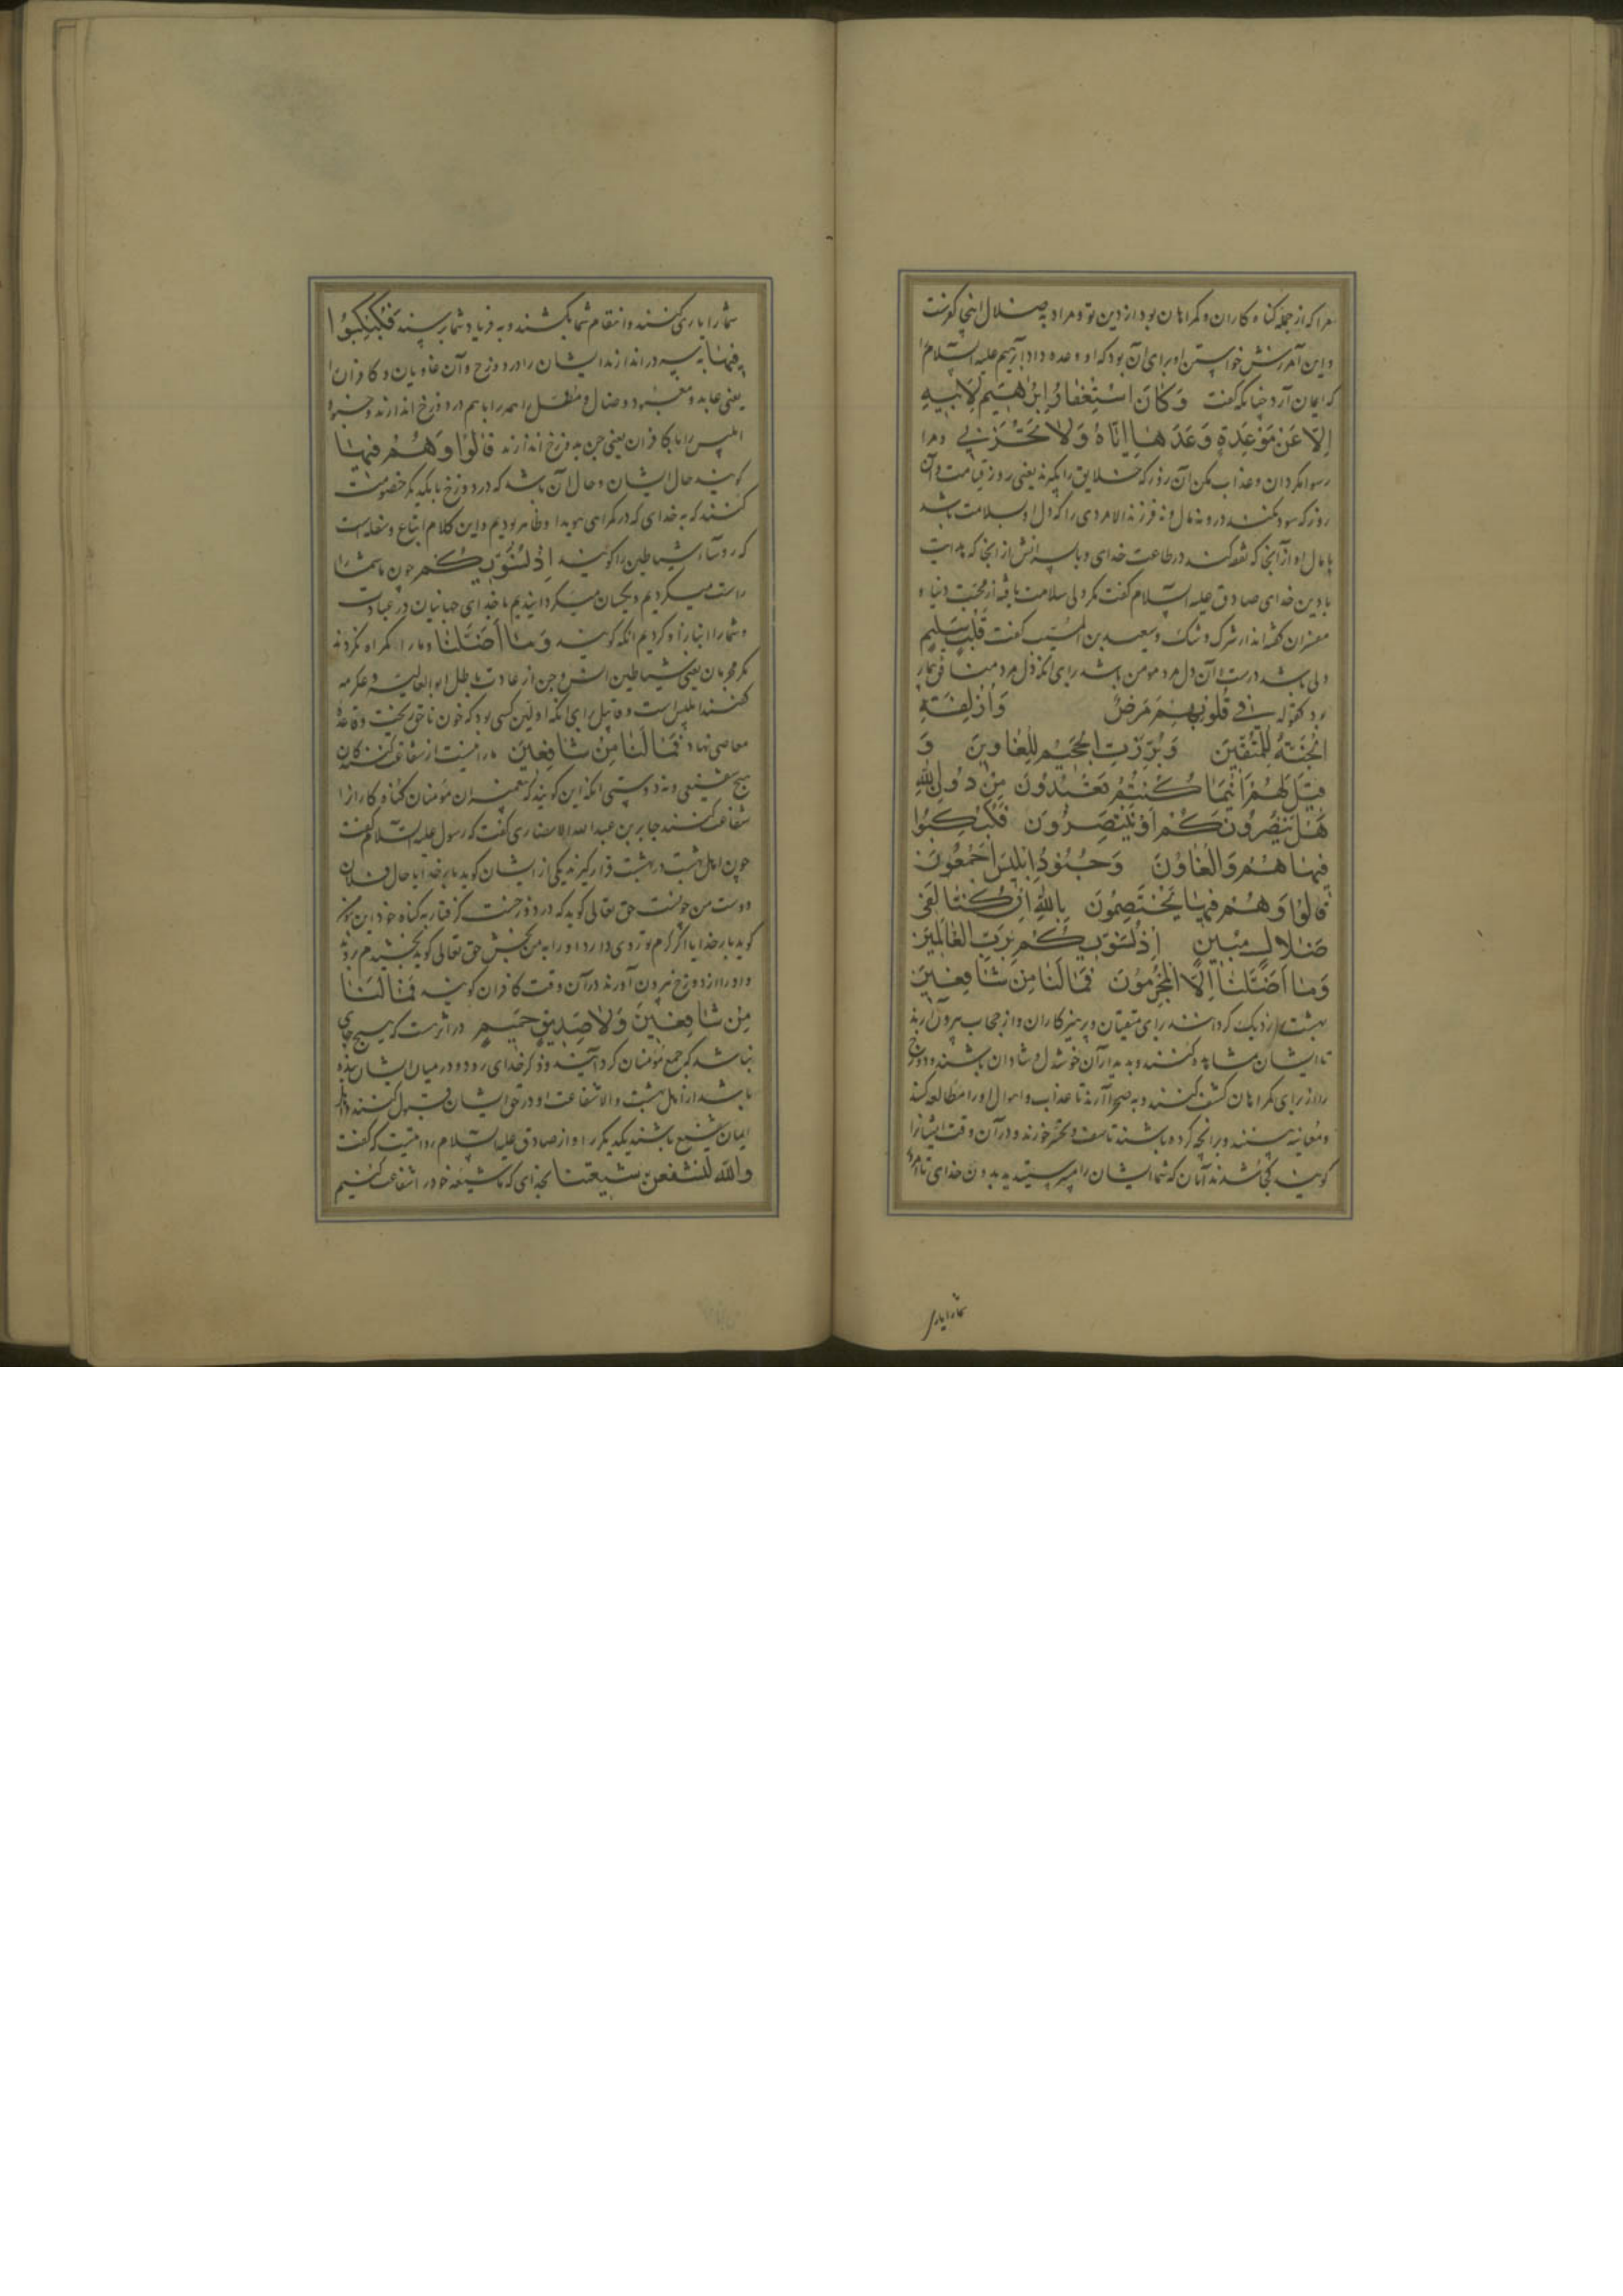 مرا که از جمله گناه کاران و گمراهان بود از دین تو و مراد به ضلال اینجا کفرست
و این آمرزش خواستن او برای آن بود که او وعده داد ابرهیم علیه السلام را
که ایمان آرد چنانکه گفت وَكَانَ اسْتِغْفَارُ اِبْرٰهِيمَ لِاَبِيهِ
اِلَّا عَنْ مَوْعِدَةٍ وَعَدَهَا اِيَّاهُ وَلَا تُخْزِنِي و مرا
رسوا مگردان و عذاب مکن آن روز که خلایق را برانگیزند یعنی روز قیامت و آن
روز که سود نکند درو نه مال و نه فرزند الا مردی را که دل او بسلامت باشد
یا مال او از آنجا که نفقه کند در طاعت خدای و یا پسرانش از آنجا که هدایت
با دین خدای صادق علیه السلام گفت مگر دلی سلامت یافته از محبت دنیا و
مفسران گفته‌اند از شرک و شک و سعید بن المسیب گفت قَلْبٍ سَلِيمٍ
دلی باشد درست آن دل مرد مومن باشد برای آنکه دل مرد منافق بیمار
بود کقوله فِي قُلُوبِهِمْ مَرَضٌ وَاُزْلِفَتِ
الْجَنَّةُ لِلْمُتَّقِينَ وَبُرِّزَتِ الْجَحِيمُ لِلْغَاوِينَ وَ
قِيلَ لَهُمْ اَيْنَمَا كُنْتُمْ تَعْبُدُونَ مِنْ دُونِ اللّٰهِ
هَلْ يَنْصُرُونَكُمْ اَوْ يَنْتَصِرُونَ فَكُبْكِبُوا
فِيهَا هُمْ وَالْغَاوُنَ وَجُنُودُ اِبْلِيسَ اَجْمَعُونَ
قَالُوا وَهُمْ فِيهَا يَخْتَصِمُونَ بِاللّٰهِ اِنْ كُنَّا لَفِي
ضَلَالٍ مُبِينٍ اِذْ نُسَوِّيكُمْ بِرَبِّ الْعَالَمِينَ
وَمَا اَضَلَّنَا اِلَّا الْمُجْرِمُونَ فَمَا لَنَا مِنْ شَافِعِينَ
بهشت را نزدیک گردانند برای متقیان و پرهیزکاران و از حجاب بیرون آرند
تا ایشان مشاهده کنند و به دیدار آن خوشدل و شادان باشند و دوزخ
را از برای گمراهان کشف کنند و به صحرا آرند تا عذاب و اهوال او را مطالعه کنند
و معاینه بینند و بر آنچه کرده باشند تاسف و تحسر خورند و در آن وقت ایشانرا
گویند کجا شدند آنان که شما ایشان را میپرستیدید بدون خدای تا امروز
شما را یاری
شما را یاری کنند و انتقام شما بکشند و به فریاد شما رسند فَكُبْكِبُوا
فِيهَا پس دراندازند ایشان را در دوزخ و آن غاویان و کافران را
یعنی عابد و معبود و ضال و مضل همه را باهم در دوزخ اندازند و جنود
ابلیس را با کافران یعنی جن به دوزخ اندازند قَالُوا وَهُمْ فِيهَا
گویند حال ایشان و حال آن باشد که در دوزخ با یکدیگر خصومت
کنند که به خدای که در گمراهی هویدا و ظاهر بودیم و این کلام اتباع و سفله است
که رؤساء شیاطین را گویند اِذْ نُسَوِّيكُمْ چون ما شما را
راست میکردیم و یکسان میگردانیدیم با خدای جهانیان در عبادت
و شما را انباز او کردیم آنگه گویند وَمَا اَضَلَّنَا و ما را گمراه نکردند
مگر مجرمان یعنی شیاطین انس و جن از عادت باطل ابو العالیه و عکرمه
گفتند ابلیس است و قابیل برای آنکه اولین کسی بود که خون ناحق ریخت و قاعده
معاصی نهاد فَمَا لَنَا مِنْ شَافِعِينَ ما را نیست از شفاعت کنندگان
هیچ شفیعی و نه دوستی آنگه این گویند که پیغمبران و مؤمنان گناه کاران را
شفاعت کنند جابر بن عبد الله الانصاری گفت که رسول علیه السلام گفت
چون اهل بهشت در بهشت قرار گیرند یکی از ایشان گوید بار خدایا حال فلان
دوست من چونست حق تعالی گوید که در دوزخست گرفتار به گناه خود این مؤمن
گوید بار خدایا اگر کرم تو روی دارد او را به من بخش حق تعالی گوید بخشیدم بروید
و او را از دوزخ بیرون آورند در آن وقت کافران گویند فَمَا لَنَا
مِنْ شَافِعِينَ وَلَا صَدِيقٍ حَمِيمٍ در اثرست که هیچ جای
نباشد که جمع مؤمنان گرد آیند و ذکر خدای رود و در میان ایشان بنده
باشد از اهل بهشت والا شفاعت او در حق ایشان قبول کنند و اهل
ایمان شفیع باشند یکدیگر را و از صادق علیه السلام روایتست که گفت
والله لنشفعن شیعتنا بخدای که ما شیعه خود را شفاعت کنیم